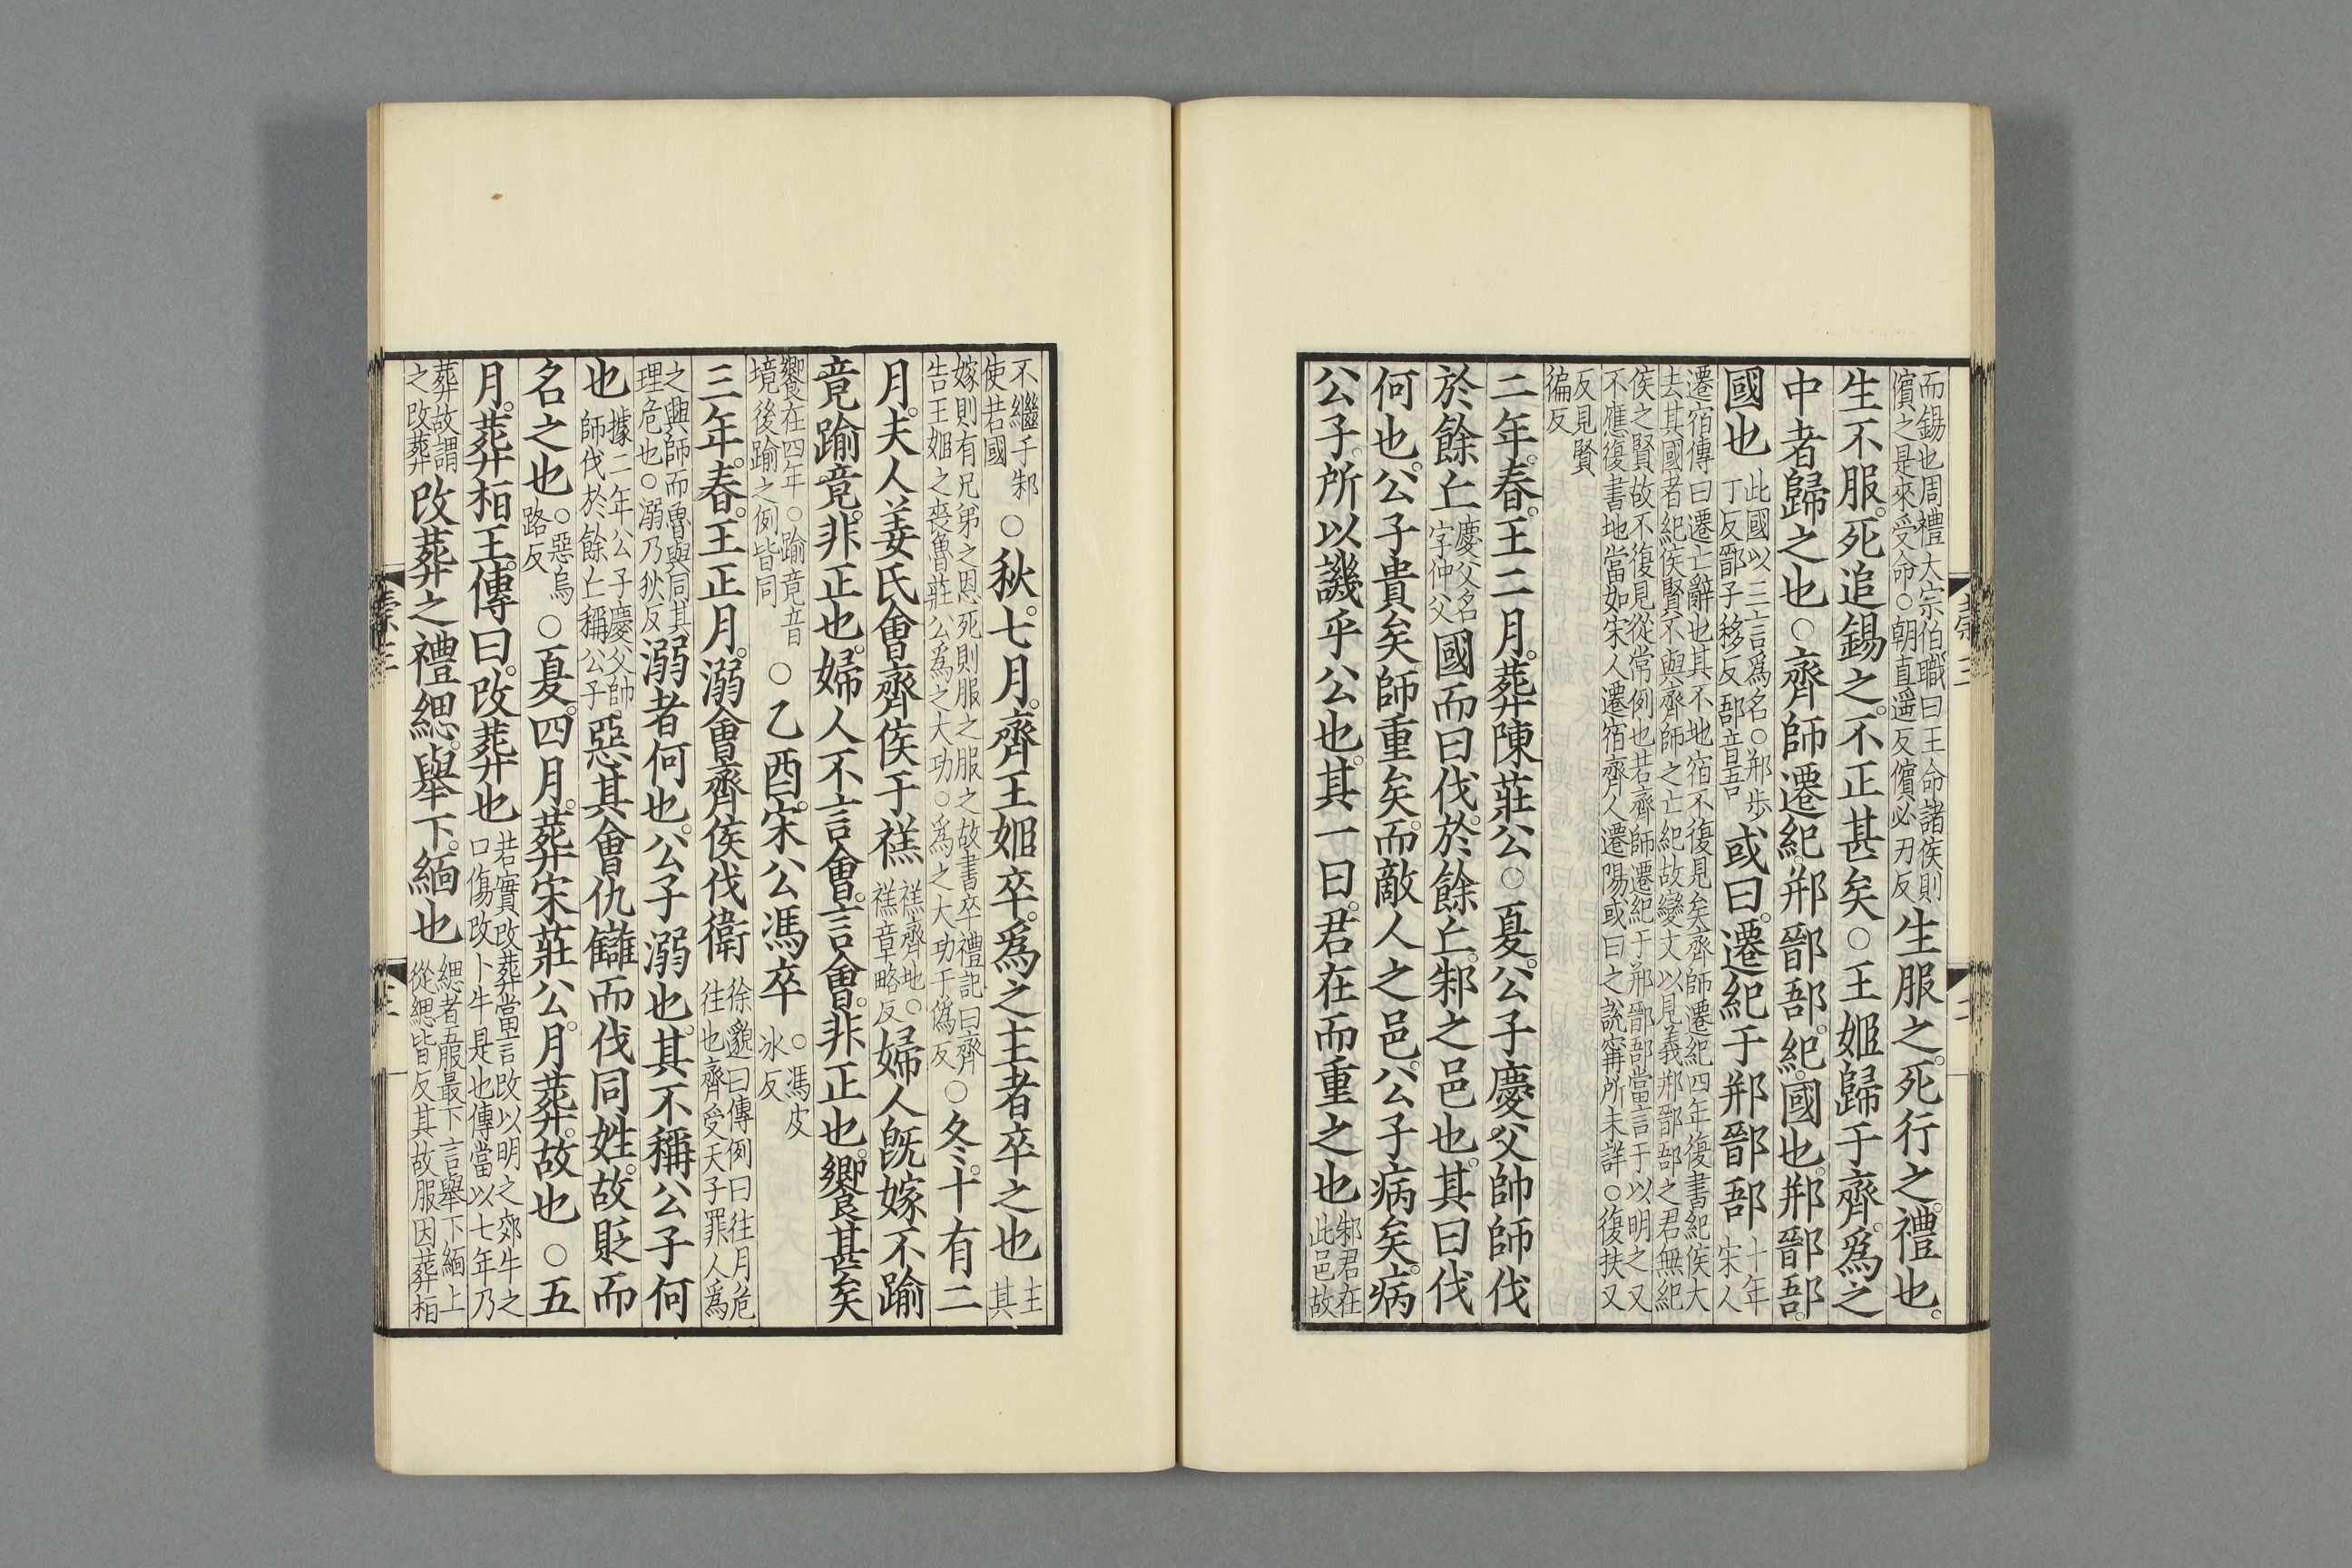 而錫也周禮大宗伯職曰王命諸侯則
儐之是來受命○朝直遥反儐必刃反
生服之死行之禮也
生不服死追錫之不正甚矣○王姬歸于齊爲之
中者歸之也○齊師遷紀郱鄑郚紀國也郱鄑郚
國也
此國以三言爲名○郱步
丁反鄑子移反郚音吾
或曰遷紀于郱鄑郚
十年
宋人
遷宿傳曰遷亡辭也其不地宿不復見矣齊師遷紀四年復書紀侯大
去其國者紀侯賢不與齊師之亡紀故變文以見義郱鄑郚之君無紀
侯之賢故不復見從常例也若齊師遷紀于郱鄑郚當言于以明之又
不應復書地當如宋人遷宿齊人遷陽或曰之說甯所未詳○復扶又
反見賢
徧反
二年春王二月葬陳莊公○夏公子慶父帥師伐
於餘丘
慶父名
字仲父
國而曰伐於餘丘邾之邑也其曰伐
何也公子貴矣師重矣而敵人之邑公子病矣病
公子所以譏乎公也其一曰君在而重之也
邾君在
此邑故
不繼于邾
使若國
○秋七月齊王姬卒爲之主者卒之也
主
其
嫁則有兄弟之恩死則服之服之故書卒禮記曰齊
告王姬之喪魯莊公爲之大功○爲之大功于僞反
○冬十有二
月夫人姜氏會齊侯于禚
禚齊地○
禚章略反
婦人旣嫁不踰
竟踰竟非正也婦人不言會言會非正也饗甚矣
饗在四年○踰竟音
境後踰之例皆同
○乙酉宋公馮卒
○馮皮
冰反
三年春王正月溺會齊侯伐衛
徐邈曰傳例曰往月危
往也齊受天子罪人爲
之興師而魯與同其
理危也○溺乃狄反
溺者何也公子溺也其不稱公子何
也
據二年公子慶父帥
師伐於餘丘稱公子
惡其會仇讎而伐同姓故貶而
名之也
○惡烏
路反
○夏四月葬宋莊公月葬故也○五
月葬桓王傳曰改葬也
若實改葬當言改以明之郊牛之
口傷改卜牛是也傳當以七年乃
葬故謂
之改葬
改葬之禮緦舉下緬也
緦者五服最下言舉下緬上
從緦皆反其故服因葬桓